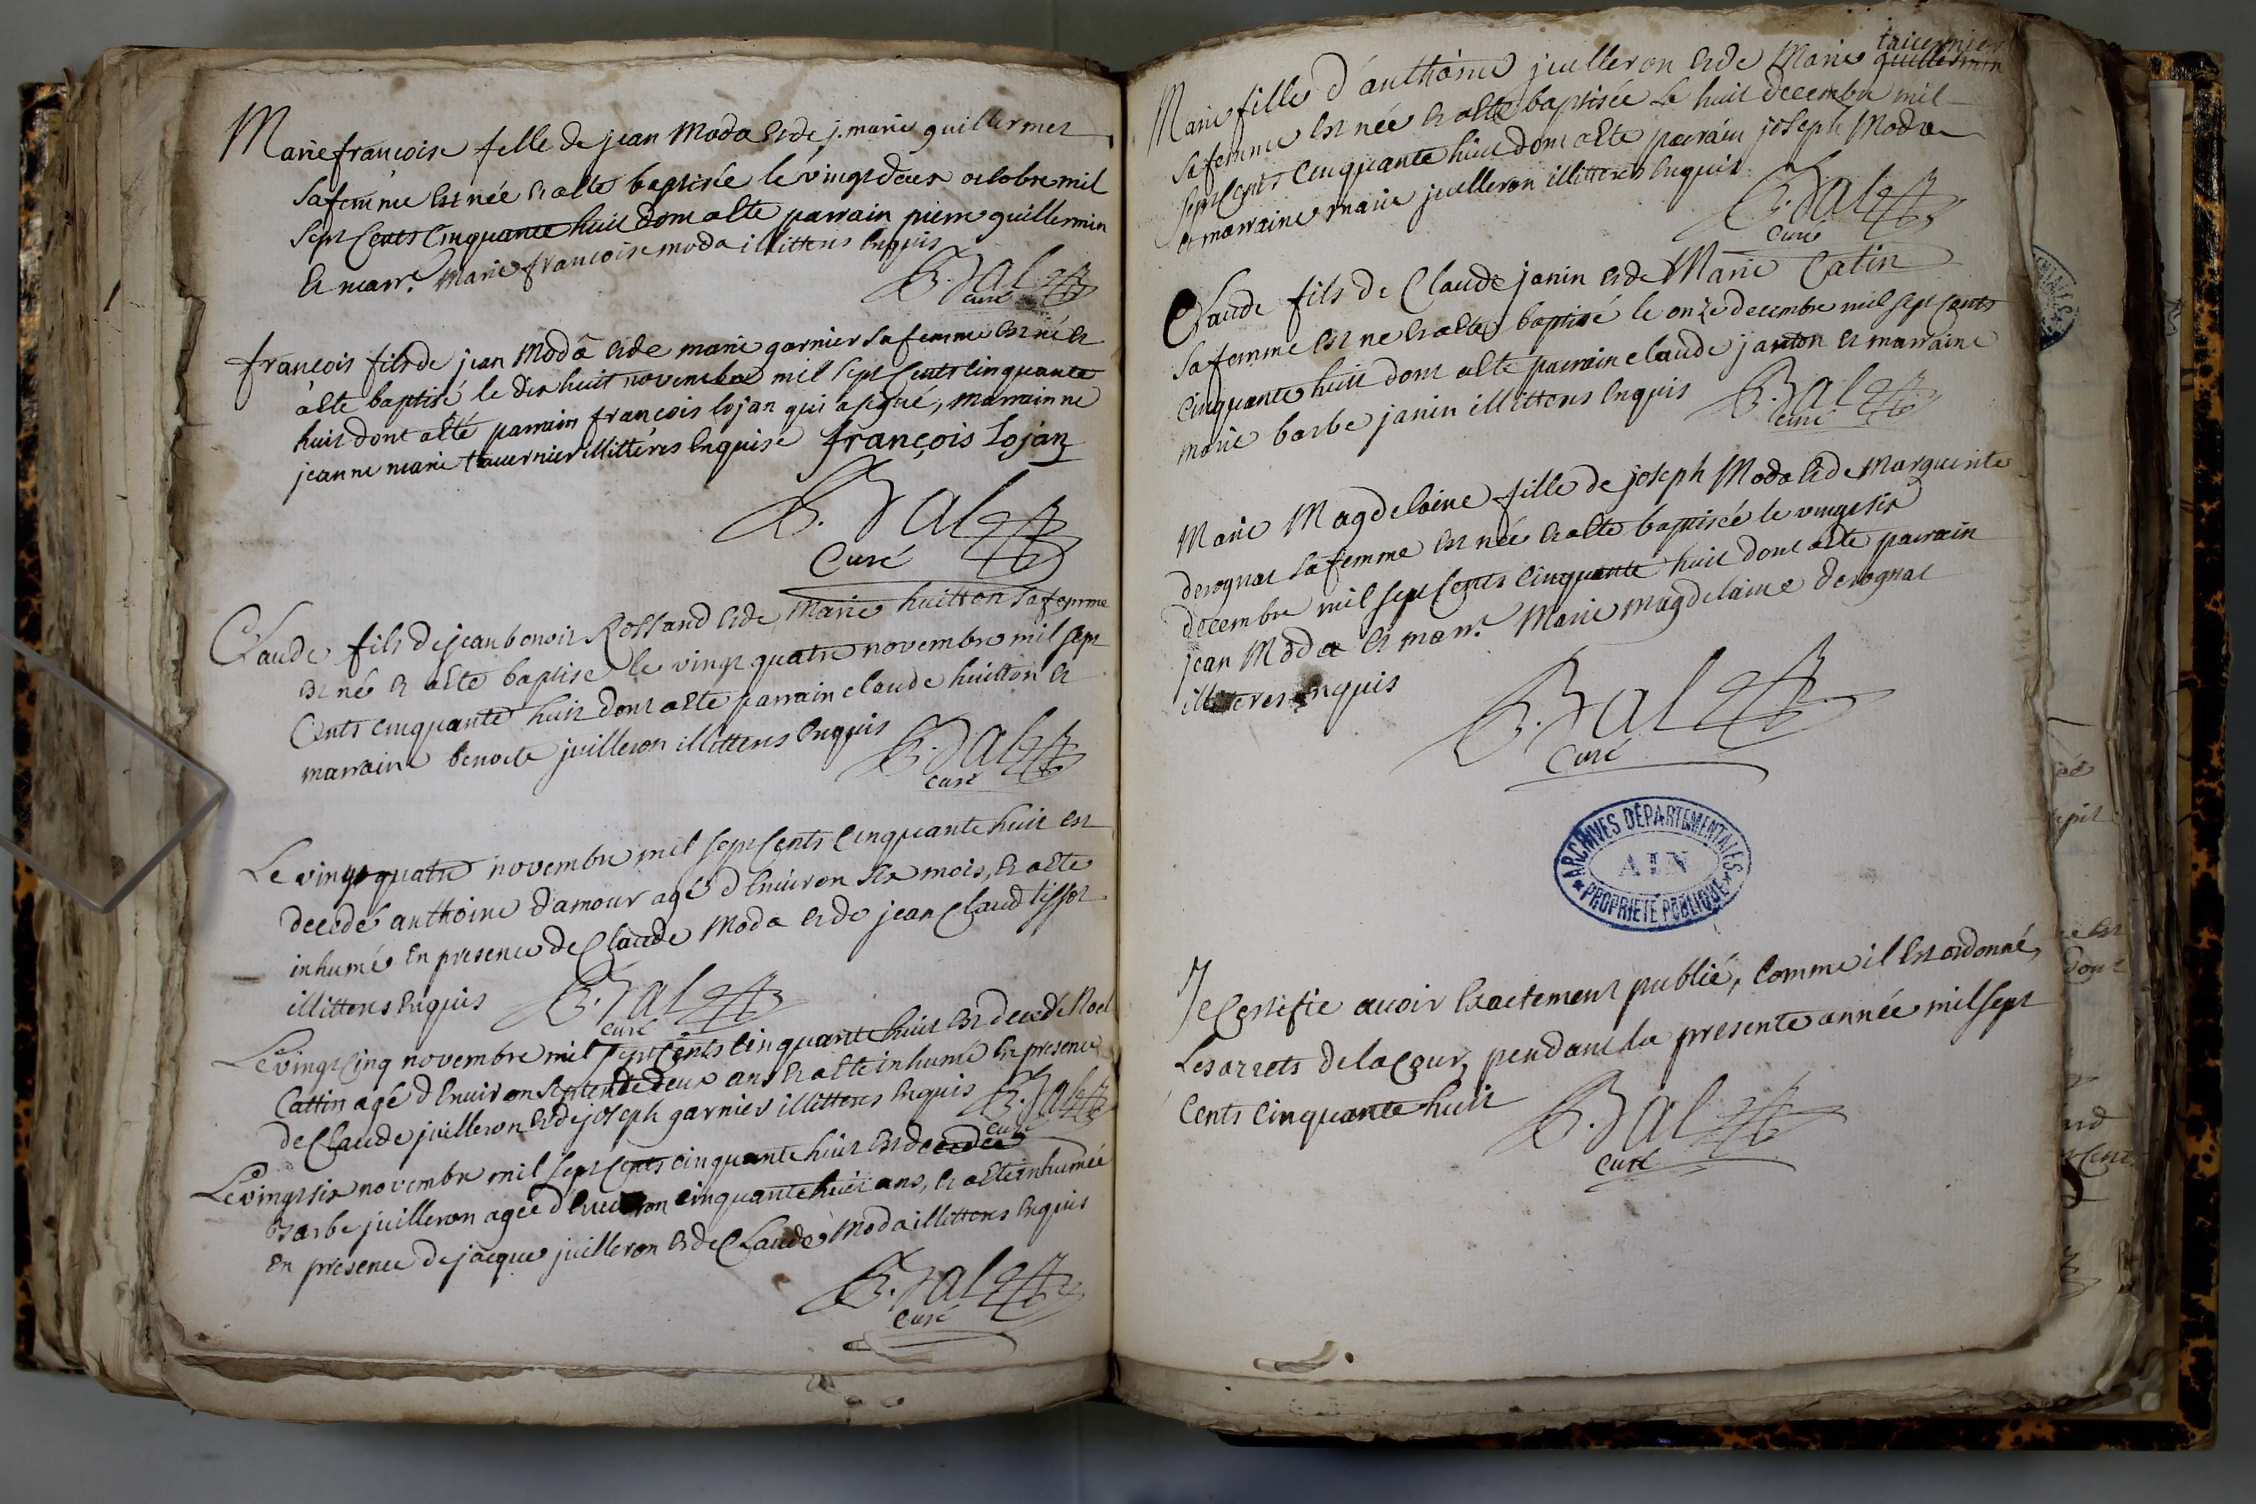 Marie francoise fille de jean Moda et de j. marie guillermet
sa femme est née et a eté baptisée le vingt deux octobre mil
sept cents cinquante huit dont a eté parrain pierre guillermin
et marr.e Marie francoise moda illitteres enquis
B. Bal
curé
françois fils de jean Moda et de marie garnier sa femme est né et
a eté baptisé le dix huit novembre mil sept cents cinquante
huit dont a eté parrain françois lojan qui a signé, marrainne
jeanne marie tavernier illittéres enquise françois Lojan
B. Bal
Curé
Claude fils de jean benoit Rossand et de Marie huitton sa femme
est né et a eté baptisé le vingt quatre novembre mil sept
Cents cinquante huit dont a eté parrain claude huitton et
marraine benoite juilleron illitteres enquis
B. Bal
curé
Le vingt quatre novembre mil sept cents cinquante huit est
decedé anthoine d'amour agé d'environ six mois, et a eté
inhumé en presence de Claude Moda et de jean Claud tissot
illitteres enquis
B. Bal
curé
Le vingt cinq novembre mil sept cents cinquante huit est decedé Noel
Cattin agé d'environ septente deux ans et a eté inhumé en presence
de Claude juilleron et de joseph garnier illitteres enquis
B. Bal
curé
Le vingt six novembre mil sept cents cinquante huit est decedée
Barbe juilleron agée d'environ cinquante huit ans, et a eté inhumée
en presence de jacque juilleron et de Claude Moda illitteres enquis
B. Bal
curé
tavernier
Marie fille d'anthoine juilleron et de Marie guillermin
sa femme est née et a eté baptisée le huit decembre mil
sept cents cinquante huit dont a eté parrain joseph Moda
et marraine marie juilleron illitteres enquis
B. Bal
curé
Claude fils de Claude janin et de Marie Catin
sa femme est né et a eté baptisé le onze decembre mil sept cents
cinquante huit dont a eté parrain claude janton et marraine
marie barbe janin illitteres enquis
B. Bal
curé
Marie Magdelaine fille de joseph Moda et de Marguerite
derognat sa femme est née et a eté baptisée le vingt six
decembre mil sept cents cinquante huit dont a eté parrain
jean Moda et marr.e Marie magdelaine derognat
illitteres enquis
B. Bal
Curé
ARCHIVES DÉPARTEMENTALES
AIN
PROPRIÉTÉ PUBLIQUE
Je Certifie avoir exactement publié, comme il est ordonné,
Les arrets de la Cour, pendant la presente année mil sept
cents cinquante huit
B. Bal
curé